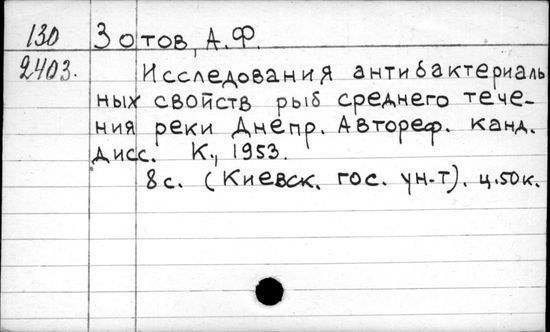 130 Зотов, А.Ф.
2403. Исследования антибактериаль
ных свойств рыб среднего тече-
ния реки Днепр. Автореф. канд.
дисс. К., 1953.
8с. (Киевск. гос. ун-т). ц.50к.